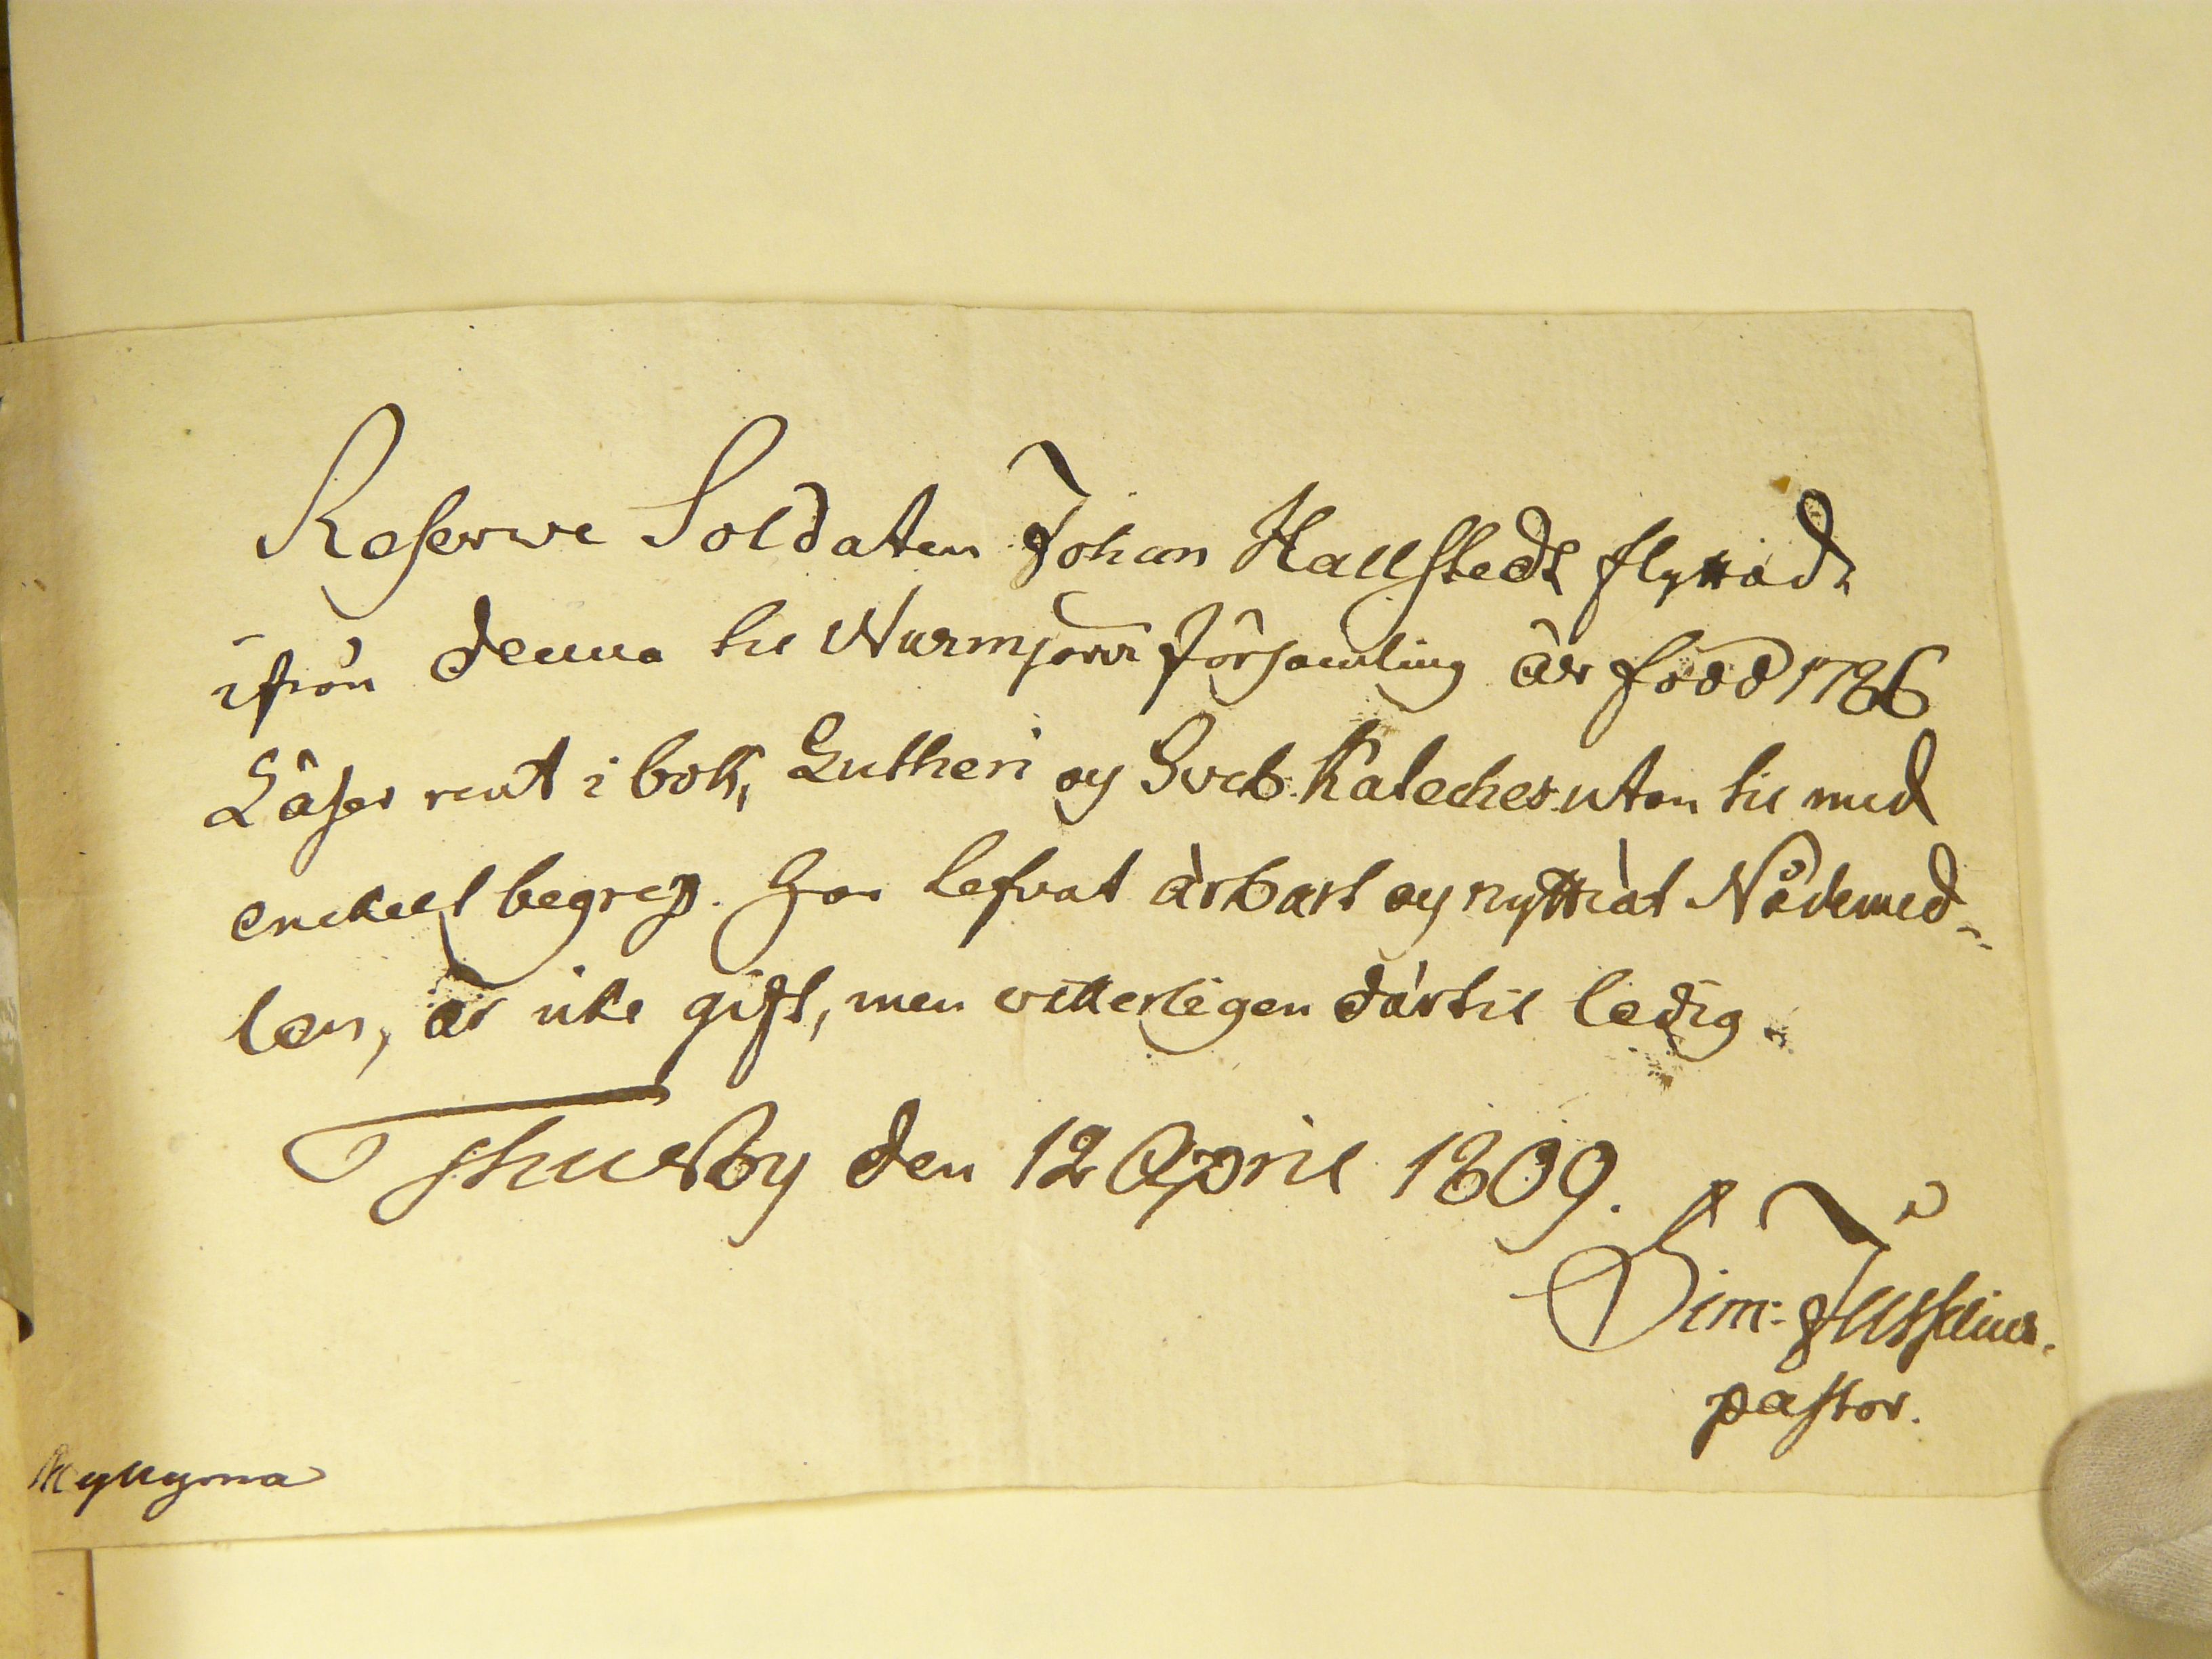 Reserwe Soldaten Johan Hallstedt flyttad
ifrån denna til Nurmjervi församling är född 1786
Läser rent i bok, Lutheri og Sveb. Kateches utan til med
enckelt begrep. Har lefvat ärbart og nyttiat Nådemed-
len, är icke gift, men vitterligen därtil ledig.
Thusby den 12 April 1809.
Sim:
pastor.